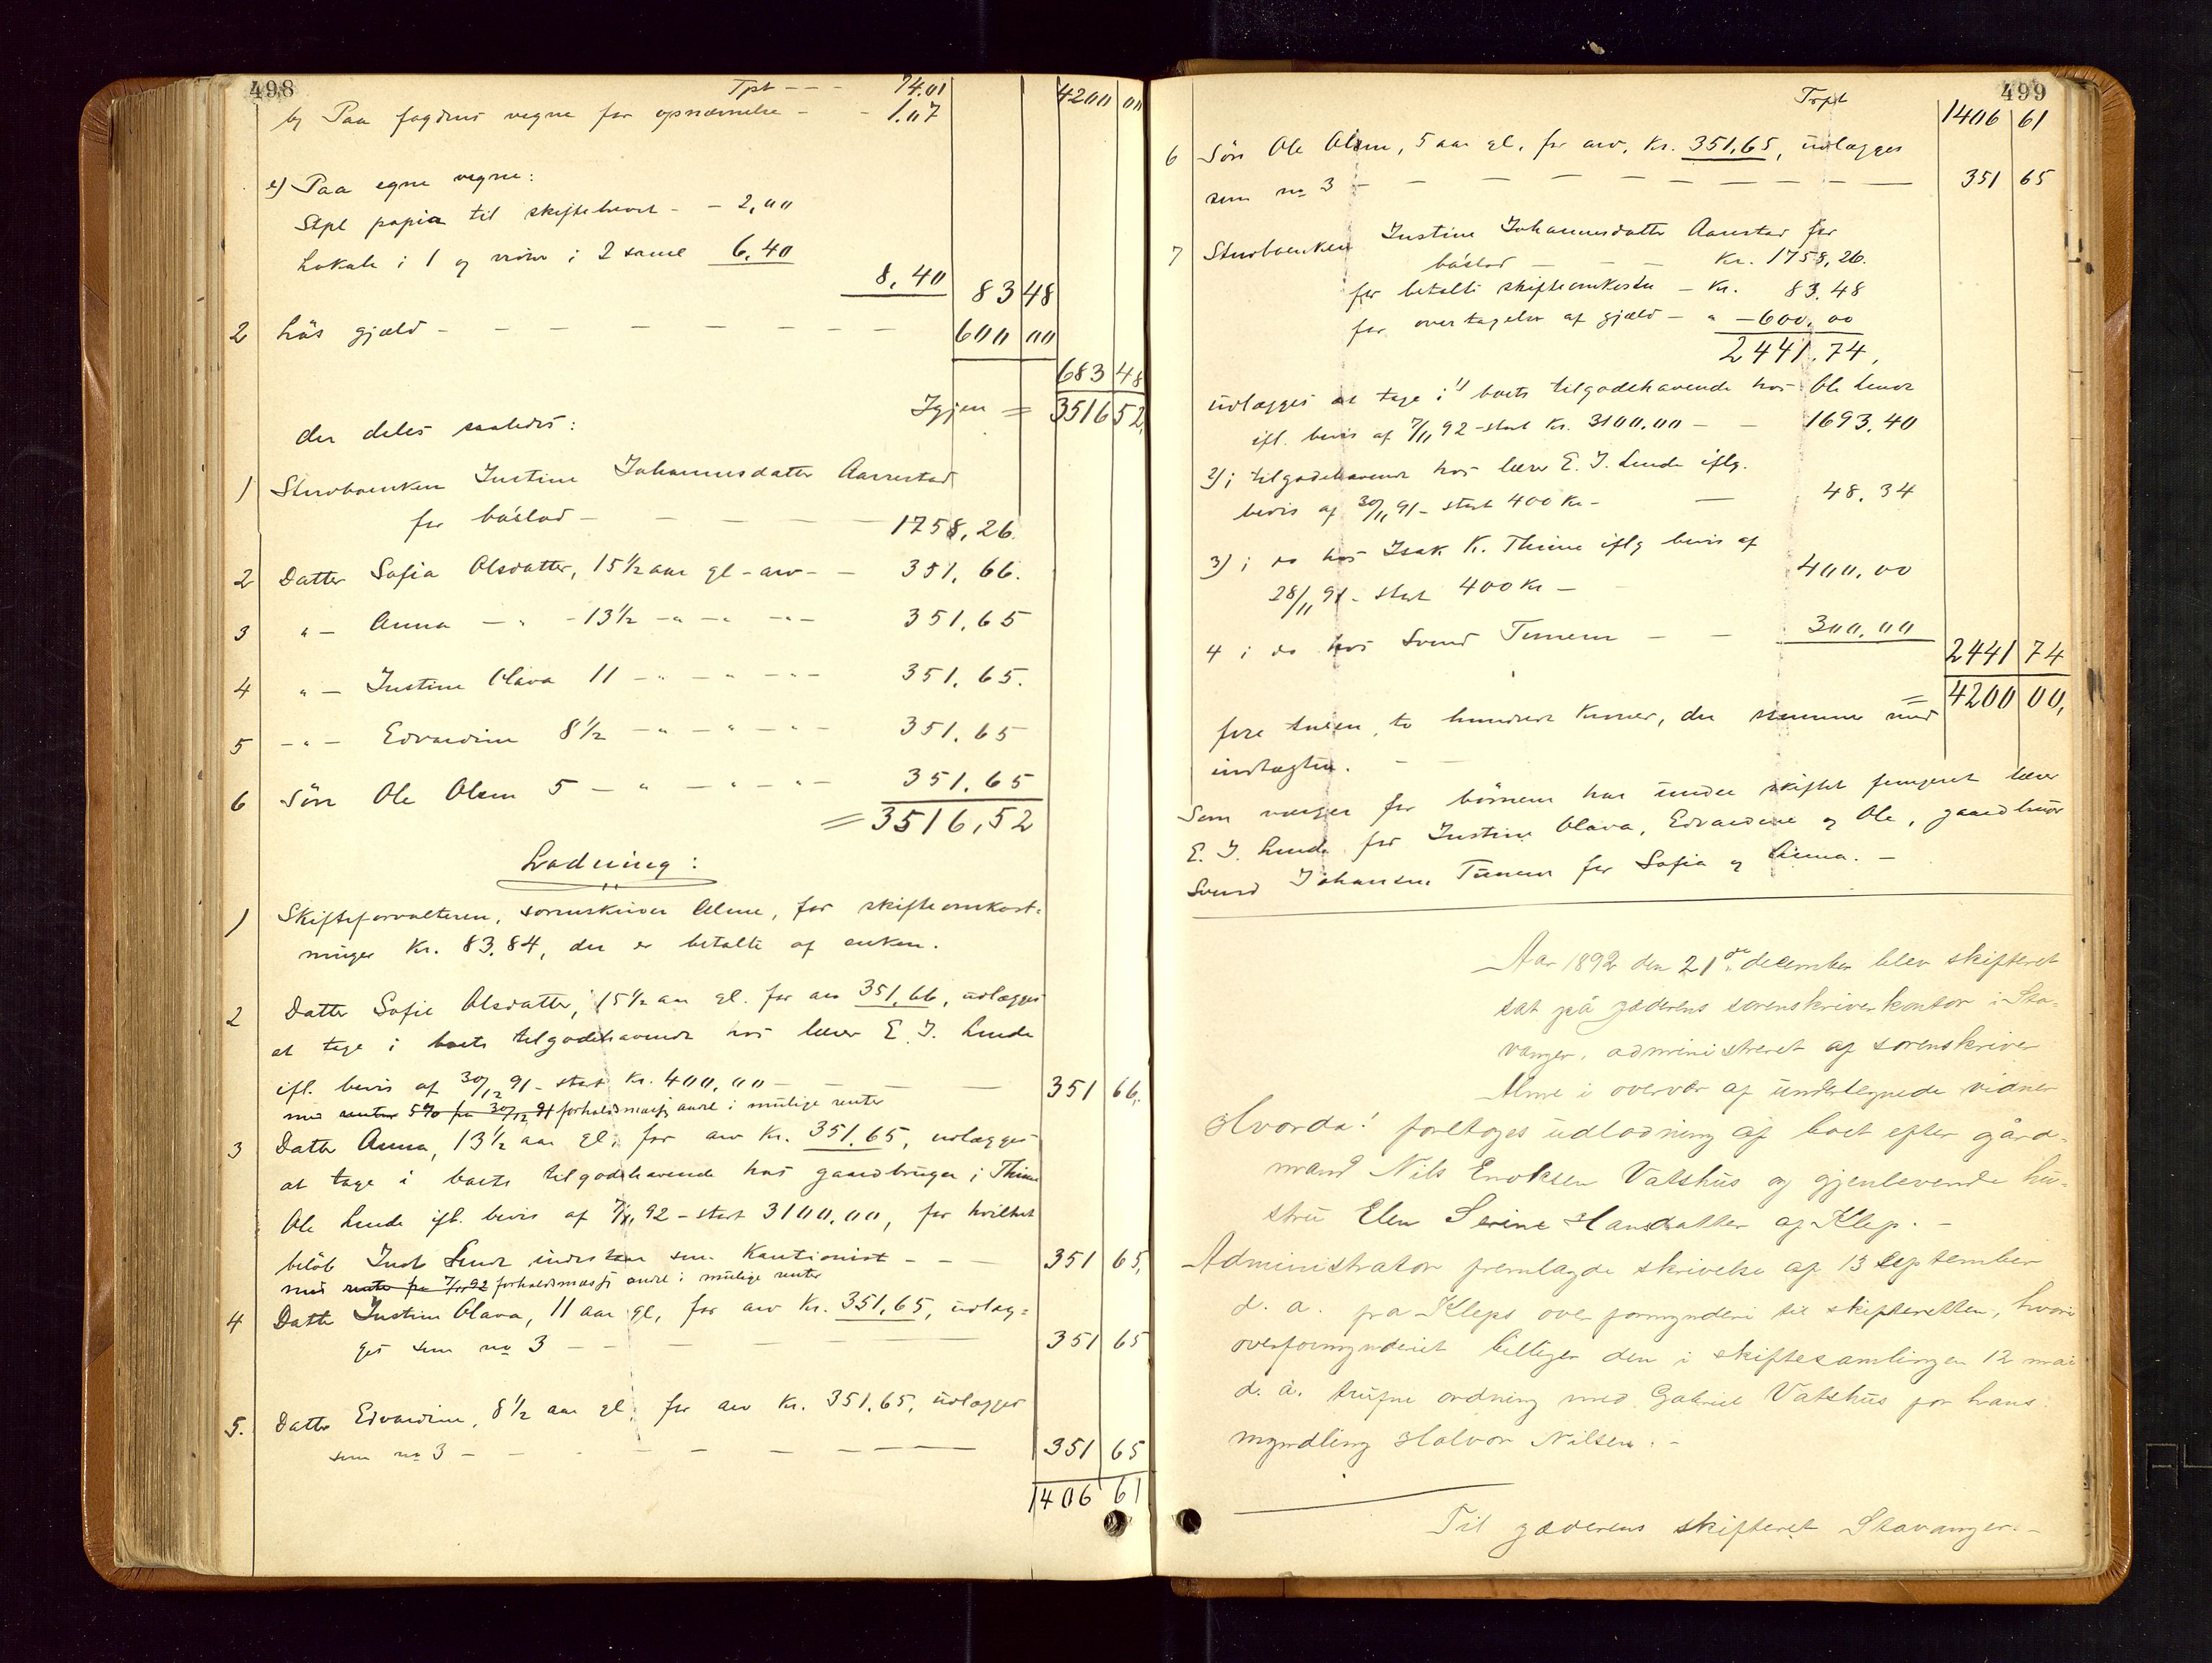 498
Tpt - - - 74.01 4200 00
b) Paa fogdens vegne for opnævnelse - - 1.07
c) Paa egne vegne:
Stpl papir til skiftebrevet - - 2,00
Lokale i 1 og vidner i 2 saml 6,40
8,40 83 48
2 Løs gjæld - - - - - - - - 600 00
683 48
Igjen = 3516 52,
der deles saaledes:
1) Sterboenken Justine Johannesdatter Aarrestad
for boslod - - - - - 1758,26.
2 Datter Sofia Olsdatter, 15½ aar gl - arv - - 351,66.
3 " - Anna - " - 13½ - " - " - " - 351,65
4 " - Justine Olava 11 - " - " - " - 351,65.
5 - " - Edvardine 8½ - " - " - " - 351,65
6 Søn Ole Olsen 5 - " - " - " - 351,65
= 3516,52
Lodning:
1) Skifteforvalteren, sorenskriver Alme, for skifteomkost-
ninger Kr. 83,84, der er betalte af enken.
2 Datter Sofie Olsdatter, 15½ aar gl. for arv 351,66, udlægges
at tage i boets tilgodehavende hos lærer E. J. Lende
ifl. bevis af 30/12 91 - stort Kr. 400,00 - - - - 351 66.
med renter 5% fra 30/12 91 forholdsmæssig andel i mulige renter
3 Datter Anna, 13½ aar gl, for arv Kr. 351,65, udlægges
at tage i boets tilgodehavende hos gaardbruger i Thime
Ole Lende ifl. bevis af 7/11 92 - stort 3100,00, for hvilket
beløb Lende indestaar som Kautionist - - - 351 65,
med renter fra 7/11 92 forholdsmæssig andel i mulige renter
4 Datter Justine Olava, 11 aar gl, for arv Kr. 351,65, udlæg-
ges som no 3 - - - - - - 351 65
5. Datter Edvardine, 8½ aar gl, for arv Kr. 351,65, udlægges
som no 3 - - - - - - - 351 65
1406 61
499
Trpt 1406 61
6 Søn Ole Olsen, 5 aar gl, for arv, Kr. 351,65, udlægges
som no 3 - - - - - - - - - 351 65
7 Sterboenken Justine Johannesdatter Aarrestad for
boslod - - - Kr. 1758,26.
for betalte skifteomkostn - Kr. 83,48
for overtagelse af gjæld - " - 600,00
2441,74,
udlægges at tage i 1) boets tilgodehavende hos Ole Lende
ifl. bevis af 7/11 92 - stort Kr. 3100,00 - - 1693,40
2) i tilgodehavende hos lærer E. J. Lende iflg.
bevis af 30/11 91 - stort 400 Kr - - 48,34
3) i do hos Isak K. Thime iflg bevis af
28/11 91 - stort 400 Kr - 400,00
4 i do hos Svend Tunem - - 300,00
2441 74
= 4200 00,
fire tusen, to hundrede Kroner, der stemmer med
indtægten. - -
Som værger for børnene har under skiftet fungeret lærer
E. J. Lende for Justine Olava, Edvardine og Ole, gaardbruger
Svend Johansen Tunem for Sofia og Anna. -
Aar 1892 den 21de december blev skifteret
sat på Jæderens sorenskriverkontor i Sta-
vanger, administreret af sorenskriver
Alme i overvær af undertegnede vidner
Hvorda! foretoges udlodning af boet efter gård-
mand Nils Enoksen Vatshus og gjenlevende hu-
stru Elen Serine Hansdatter af Klep. -
Administrator fremlagde skrivelse af 13 september
d. a. fra Kleps overformynderi til skifteretten, hvori
overformynderiet billiger den i skiftesamlingen 12 mai
d. å. trufne ordning med Gabriel Vatshus for hans
myndling Halvor Nilsen. -
Til Jæderens skifteret Stavanger. -